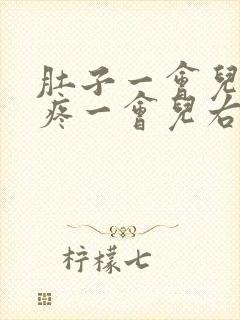 肚子一會兒
疼一會兒右
柠檬七